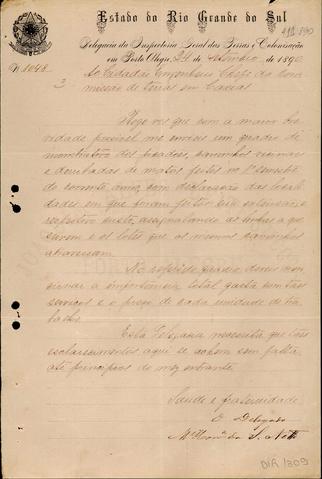 Estado do Rio Grande do Sul
Delegacia da Inspectoria Geral das Terras e Colonisação
em Porto Alegre, 24 de de 1890
N. 1048
Ao Cidadão Engenheiro Chefe da Com
missão de terras em Caxias
Rogo vos que com a maior bre
vidade possivel me envieis um quadro de
monstrativo das estradas, caminhos vicinaes
e derrubadas de matos feitos no 1º semestre
do corrente anno, com declaração das locali
dades em que foram feitos, sua extensão, e
respectivo custo, assignalando as linhas a que
servem e os lotes que os mesmos caminhos
atravessam.
No referido quadro deveis con
signar a importancia total gasta com taes
serviços e o preço de cada unidade de tra
balho.
Esta Delegacia necessita que taes
esclarecimentos aqui se achem sem falta
até principios do mez entrante.
Saude e fraternidade
O Delegado
DIR 1309